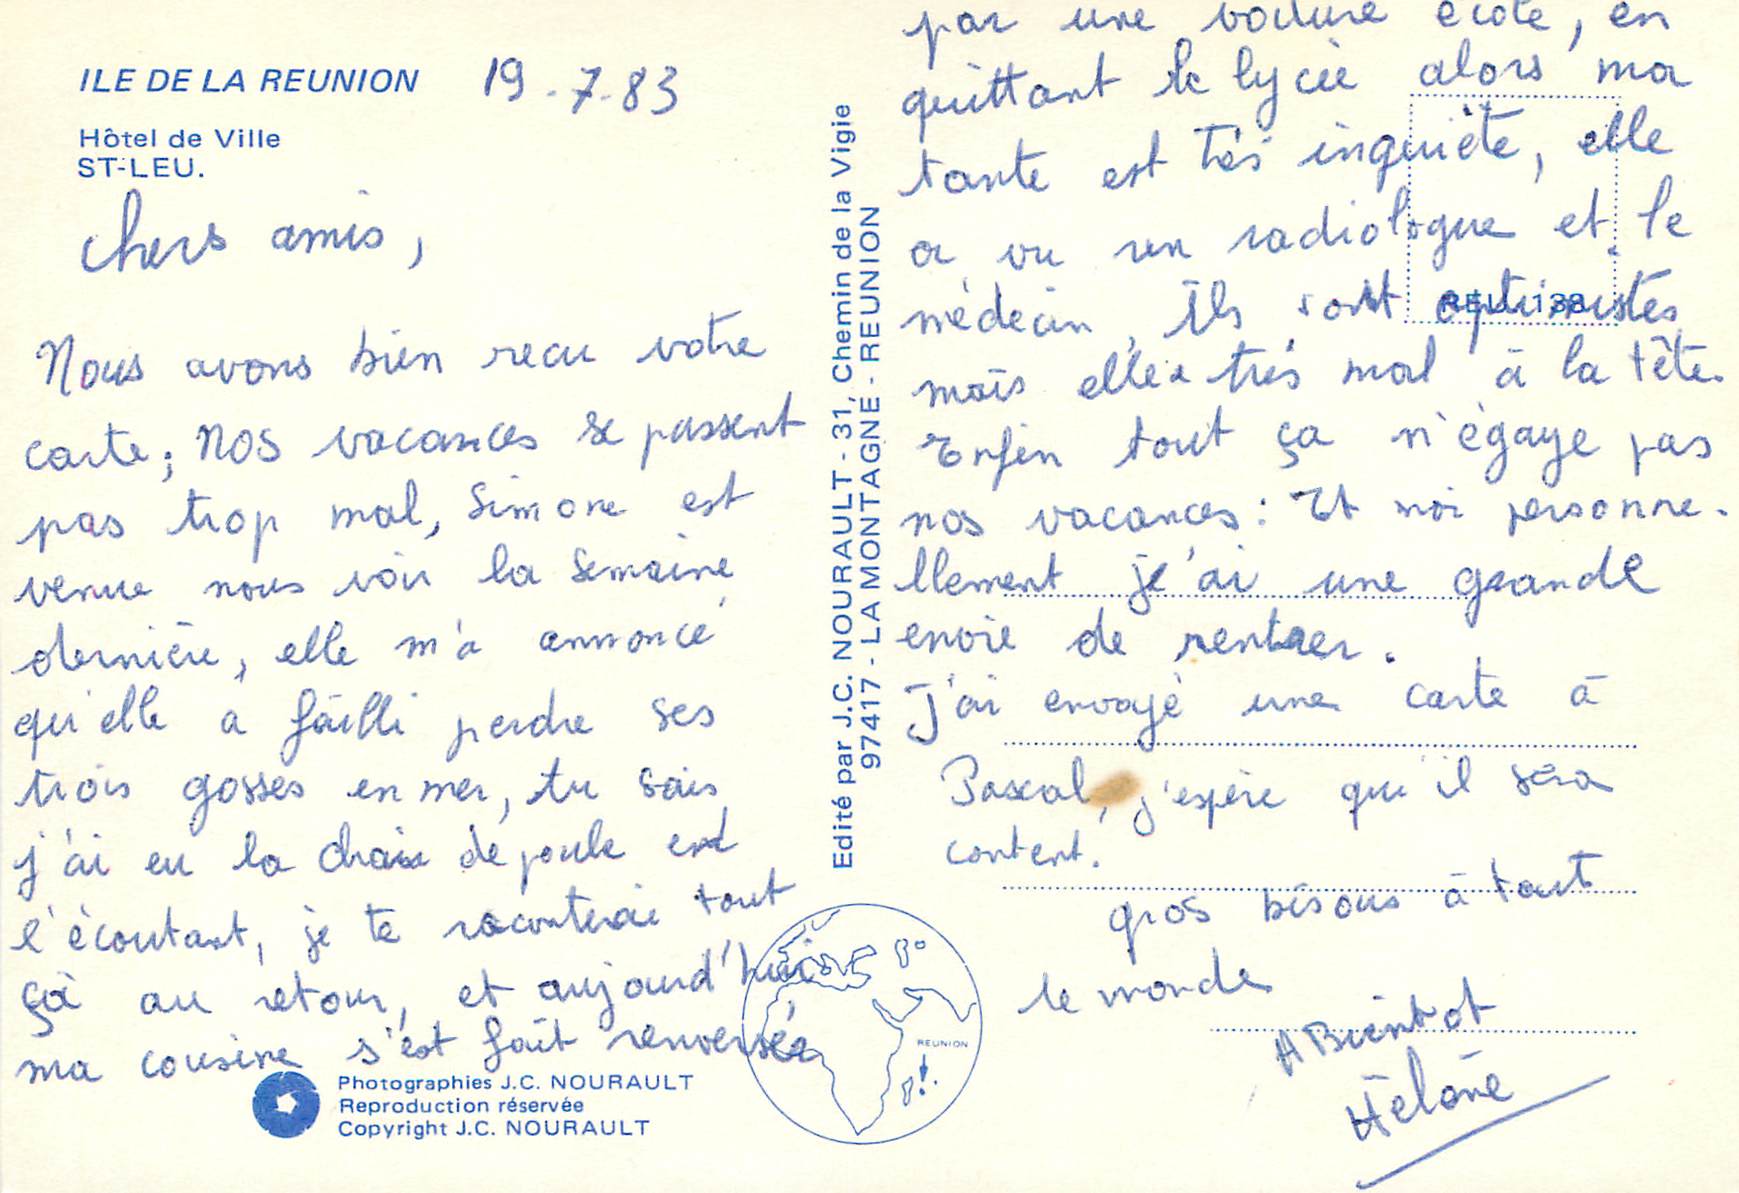 ILE DE LA REUNION 19.7.83
Hôtel de Ville
ST-LEU.
Chers amis,
Nous avons bien recu votre
carte; Nos vacances se passent
pas trop mal, Simone est
venue nous voir la semaine
dernière, elle m'a annoncé
qu'elle a failli perdre ses
trois gosses en mer, tu sais
j'ai eu la chair de poule en
l'écoutant, je te raconterai tout
ça au retour, et aujourd'hui
ma cousine s'est fait renversée
Photographies J.C. NOURAULT
Reproduction réservée
Copyright J.C. NOURAULT
Edité par J.C. NOURAULT - 31, Chemin de la Vigie
97417 - LA MONTAGNE - REUNION
REUNION
par une voiture école, en
quittant le lycée alors ma
tante est très inquiète, elle
a vu un radiologue et le
médecin, Ils sont optimistes
REU. 138
mais elle a très mal à la tête.
Enfin tout ça n'égaye pas
nos vacances: Et moi personne-
llement j'ai une grande
envie de rentrer.
J'ai envoyé une carte à
Pascal, j'espère qu'il sera
content.
gros bisous à tout
le monde
A Bientot